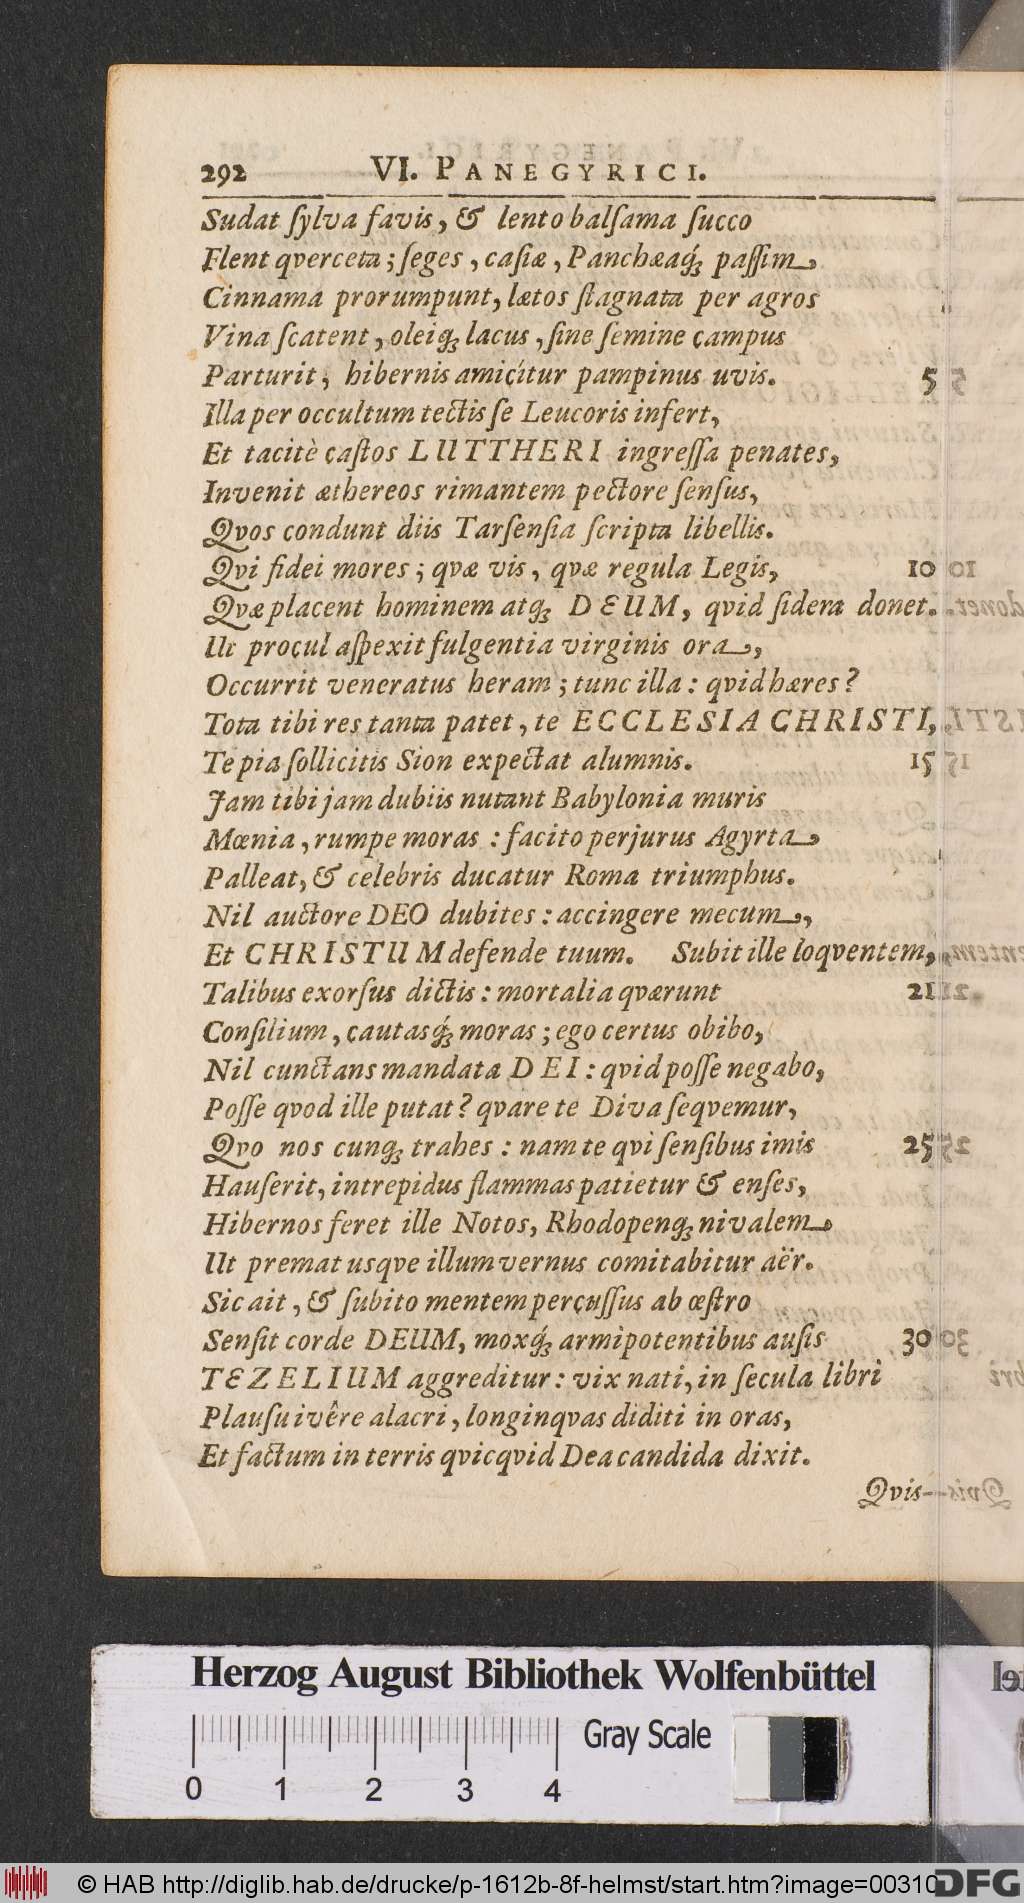 292 VI. PANEGYRICI.
Sudat ſylva favis, & lento balſama ſucco
Flent qverceta; ſeges, caſiæ, Panchæaq́ꝫ paſſim,
Cinnama prorumpunt, lætos ſtagnata per agros
Vina ſcatent, oleiqꝫ lacus, ſine ſemine campus
Parturit, hibernis amicítur pampinus uvis. 5
Illa per occultum tectis ſe Leucoris infert,
Et tacitè caſtos LUTTHERI ingreſſa penates,
Invenit æthereos rimantem pectore ſenſus,
Qvos condunt diis Tarſenſia ſcripta libellis.
Qvi fidei mores; qvæ vis, qvæ regula Legis, 10
Qvæ placent hominem atqꝫ DEUM, qvid ſidera donet.
Ut procul aſpexit fulgentia virginis ora,
Occurrit veneratus heram; tunc illa: qvid hæres?
Tota tibi res tanta patet, te ECCLESIA CHRISTI,
Te pia ſollicitis Sion expectat alumnis. 15
Jam tibi jam dubiis nutant Babylonia muris
Mœnia, rumpe moras: facito perjurus Agyrta
Palleat, & celebris ducatur Roma triumphus.
Nil auctore DEO dubites: accingere mecum,
Et CHRISTUM defende tuum. Subit ille loqventem,
Talibus exorſus dictis: mortalia qværunt 21
Conſilium, cautasq́ꝫ moras; ego certus obibo,
Nil cunctans mandata DEI: qvid poſſe negabo,
Poſſe qvod ille putat? qvare te Diva ſeqvemur,
Qvo nos cunqꝫ trahes: nam te qvi ſenſibus imis 25
Hauſerit, intrepidus flammas patietur & enſes,
Hibernos feret ille Notos, Rhodopenqꝫ nivalem
Ut premat usqve illum vernus comitabitur aër.
Sic ait, & ſubito mentem percuſſus ab œſtro
Senſit corde DEUM, moxq́ꝫ armipotentibus auſis 30
TEZELIUM aggreditur: vix nati, in ſecula libri
Plauſu ivêre alacri, longinqvas diditi in oras,
Et factum in terris qvicqvid Dea candida dixit.
Qvis-
Herzog August Bibliothek Wolfenbüttel
Gray Scale
0 1 2 3 4
© HAB http://diglib.hab.de/drucke/p-1612b-8f-helmst/start.htm?image=00310
DFG